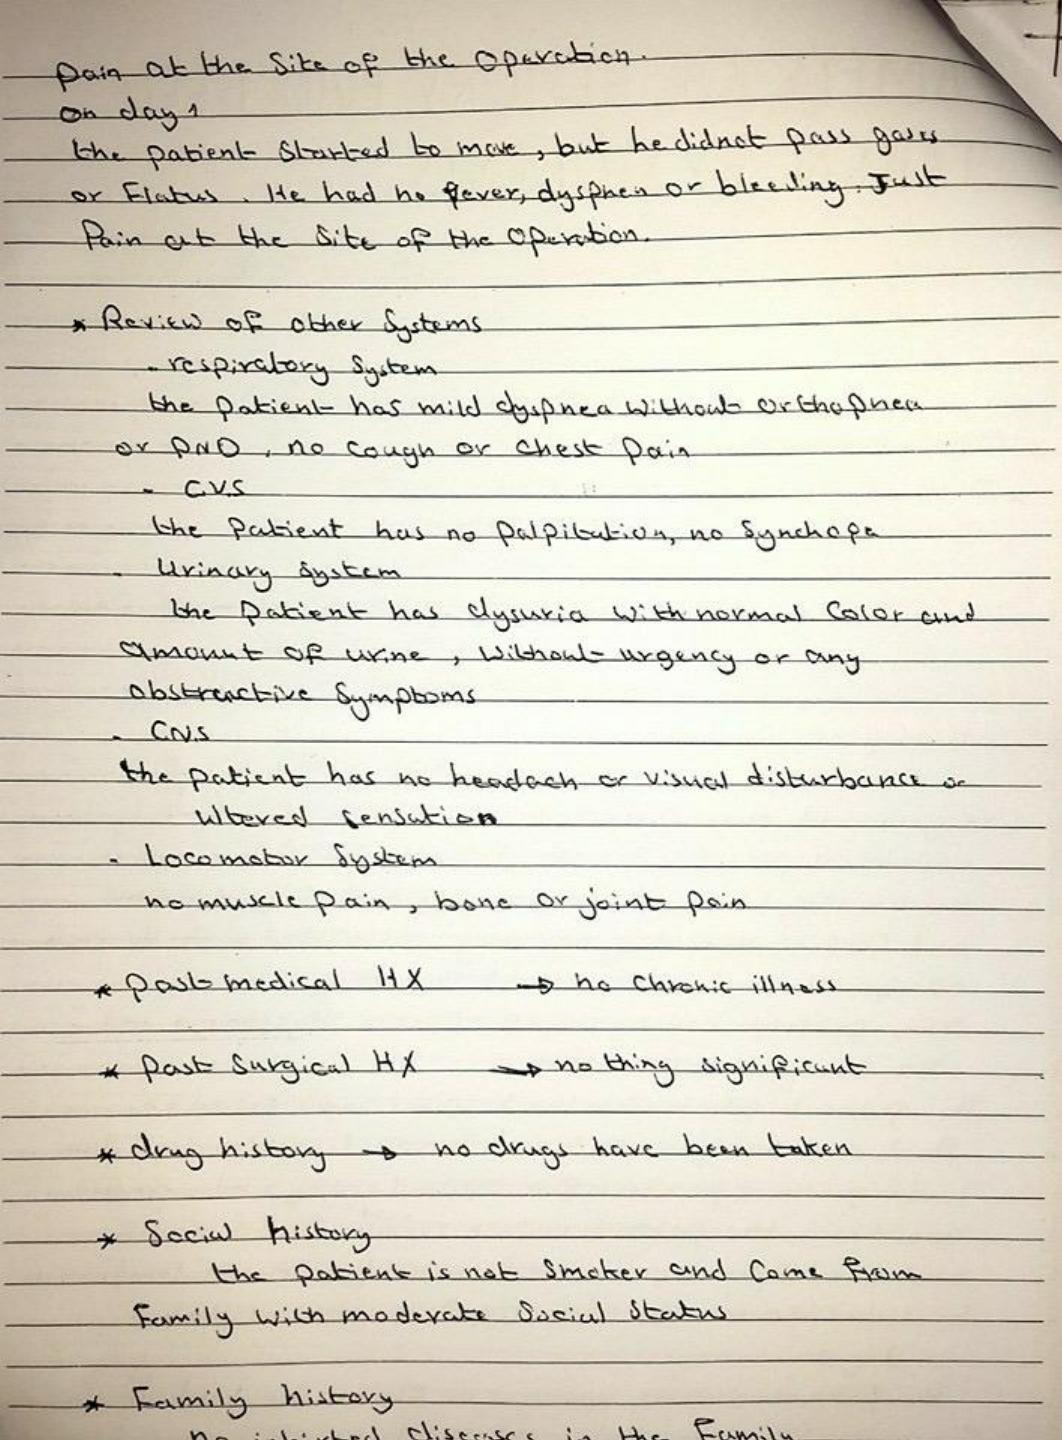 Pain at the Site of the Operation.
on day 1
the patient Started to move, but he didnot pass gases
or Flatus. He had no fever, dysphea or bleeding. Just
Pain at the Site of the Operation.
* Review of other Systems
- respiratory System
the patient has mild dyspnea without orthopnea
or PND, no Cough or Chest Pain
- C.V.S
the Patient has no Palpitation, no Synchope
- Urinary System
the Patient has dysuria with normal Color and
amount of urine, without urgency or any
obstractive Symptoms
- CNS
the patient has no headach or visual disturbance or
altered sensation
- Locomotor System
no muscle pain, bone or joint pain
* past medical HX → no Chronic illness
* Past Surgical HX → nothing significant
* drug history → no drugs have been taken
* Social history
the patient is not Smoker and Come from
Family with moderate Social Status
* Family history
no diseases in the Family